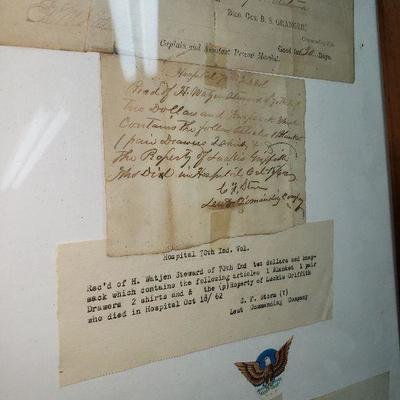 Brig. Gen B. S. GRANGER,
Commanding
Captain and Assistant Provost Marshal. Good for Days.
Hospital 70
of H. Watjen Steward of 70th Ind
two Dollars and Knapsack which
Contains the following articles 1 Blanket
1 pair Drawers 2 shirts &
the Property of Luckie Griffith
Who Died in Hospital Oct 18/62
C F Storm
Leut Commanding Compy
Hospital 70th Ind. Vol.
Rec'd of H. Watjen Steward of 70th Ind two dollars and knap-
sack which contains the following articles 1 Blanket 1 pair
Drawers 2 shirts and & the (p)Roperty of Luckie Griffith
who died in Hospital Oct 18/ 62
C. F. Storm (?)
Leut Commanding Company